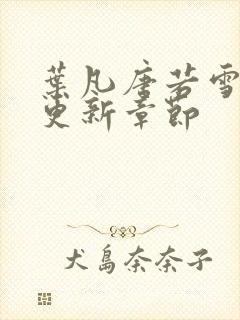 葉凡唐若雪
更新章節
犬島奈奈子